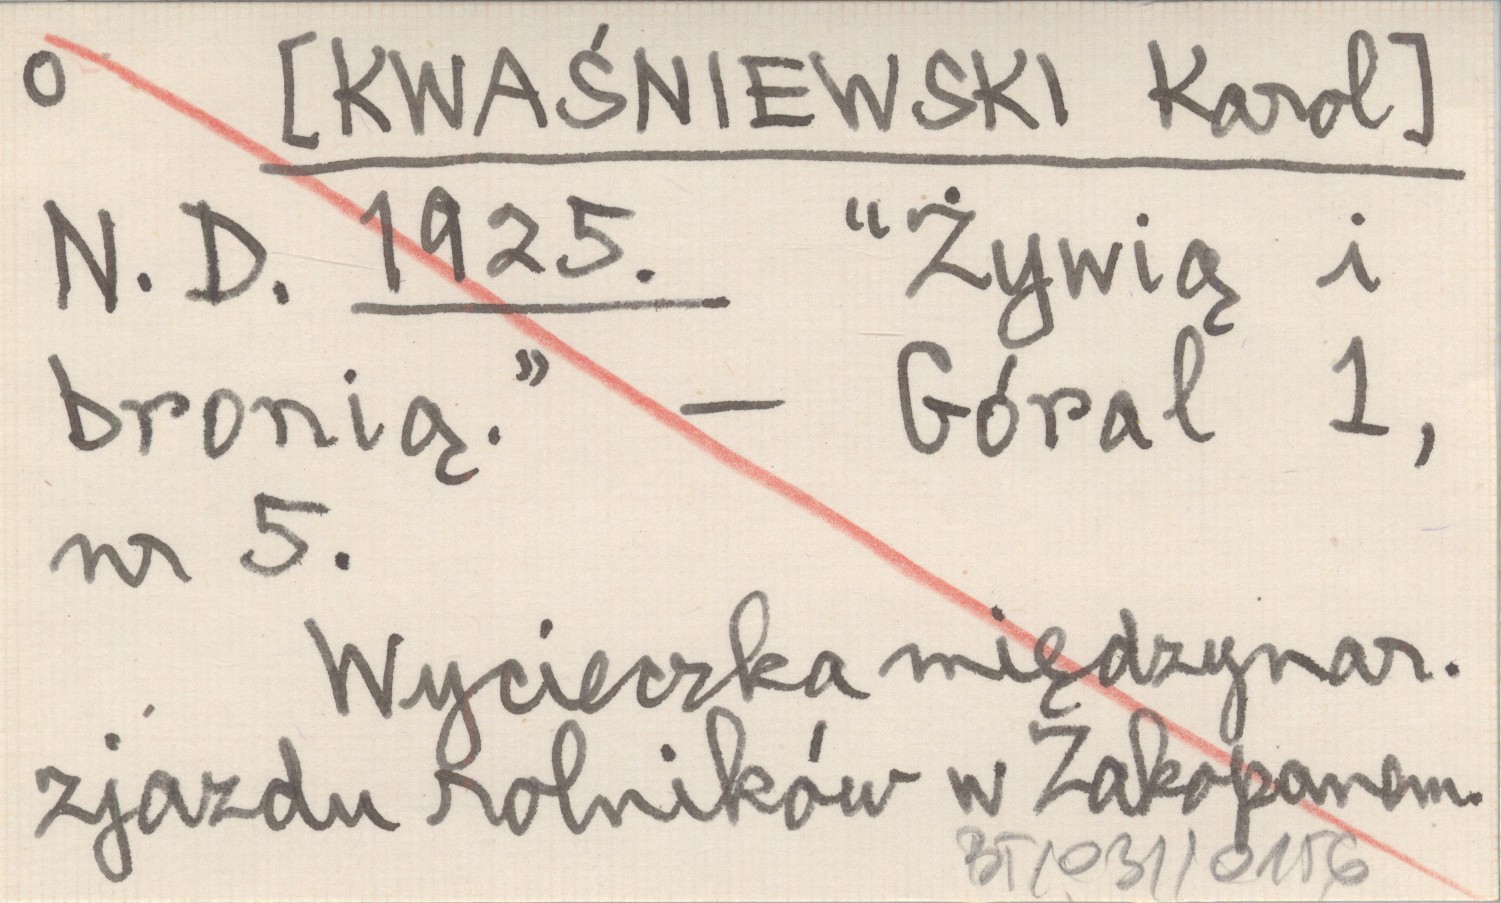 o [KWAŚNIEWSKI Karol]
N. D. 1925. “Żywią i
bronią.” — Góral 1,
nr 5.
Wycieczka międzynar.
zjazdu rolników w Zakopanem.
BT/031/0156